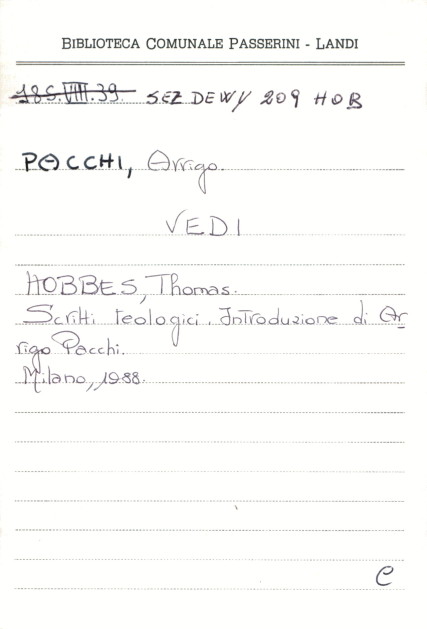 BIBLIOTECA COMUNALE PASSERINI - LANDI
18S.VIII.39. SEZ DEWY 209 HOB
PACCHI, Arrigo.
VEDI
HOBBES, Thomas.
Scritti teologici. Introduzione di Ar
rigo Pacchi.
Milano, 1988.
C